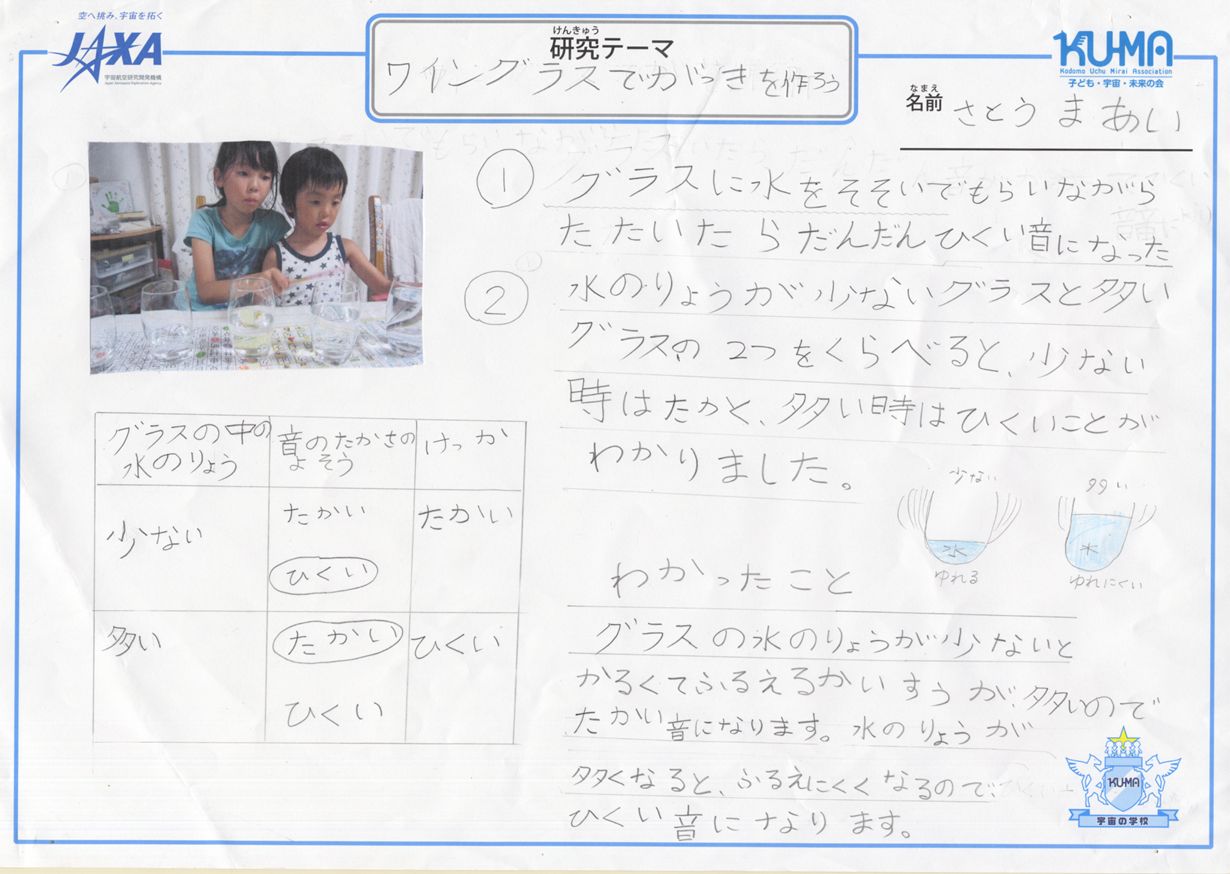 空へ挑み、宇宙を拓く
JAXA
宇宙航空研究開発機構
Japan Aerospace Exploration Agency
けんきゅう
研究テーマ
ワイングラスでがっきを作ろう
KU-MA
Kodomo Uchu Mirai Association
子ども・宇宙・未来の会
なまえ
名前 さとう まあい
① グラスに水をそそいでもらいながら
たたいたらだんだんひくい音になった
② 水のりょうが少ないグラスと多い
グラスの2つをくらべると、少ない
時はたかく、多い時はひくいことが
わかりました。
少ない 多い
水 水
ゆれる ゆれにくい
グラスの中の水のりょう 音のたかさのよそう けっか
少ない たかい たかい
ひくい
多い たかい ひくい
ひくい
わかったこと
グラスの水のりょうが少ないと
かるくてふるえるかいすうが多いので
たかい音になります。水のりょうが
多くなると、ふるえにくくなるので、
ひくい音になります。
KU-MA
宇宙の学校